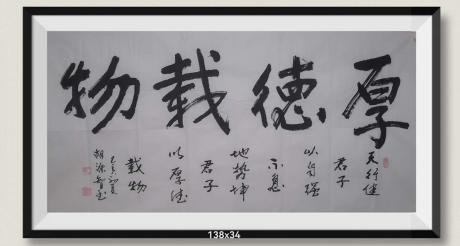 厚德载物
天行健
君子
以自强
不息
地势坤
君子
以厚德
载物
己亥初夏
138x34